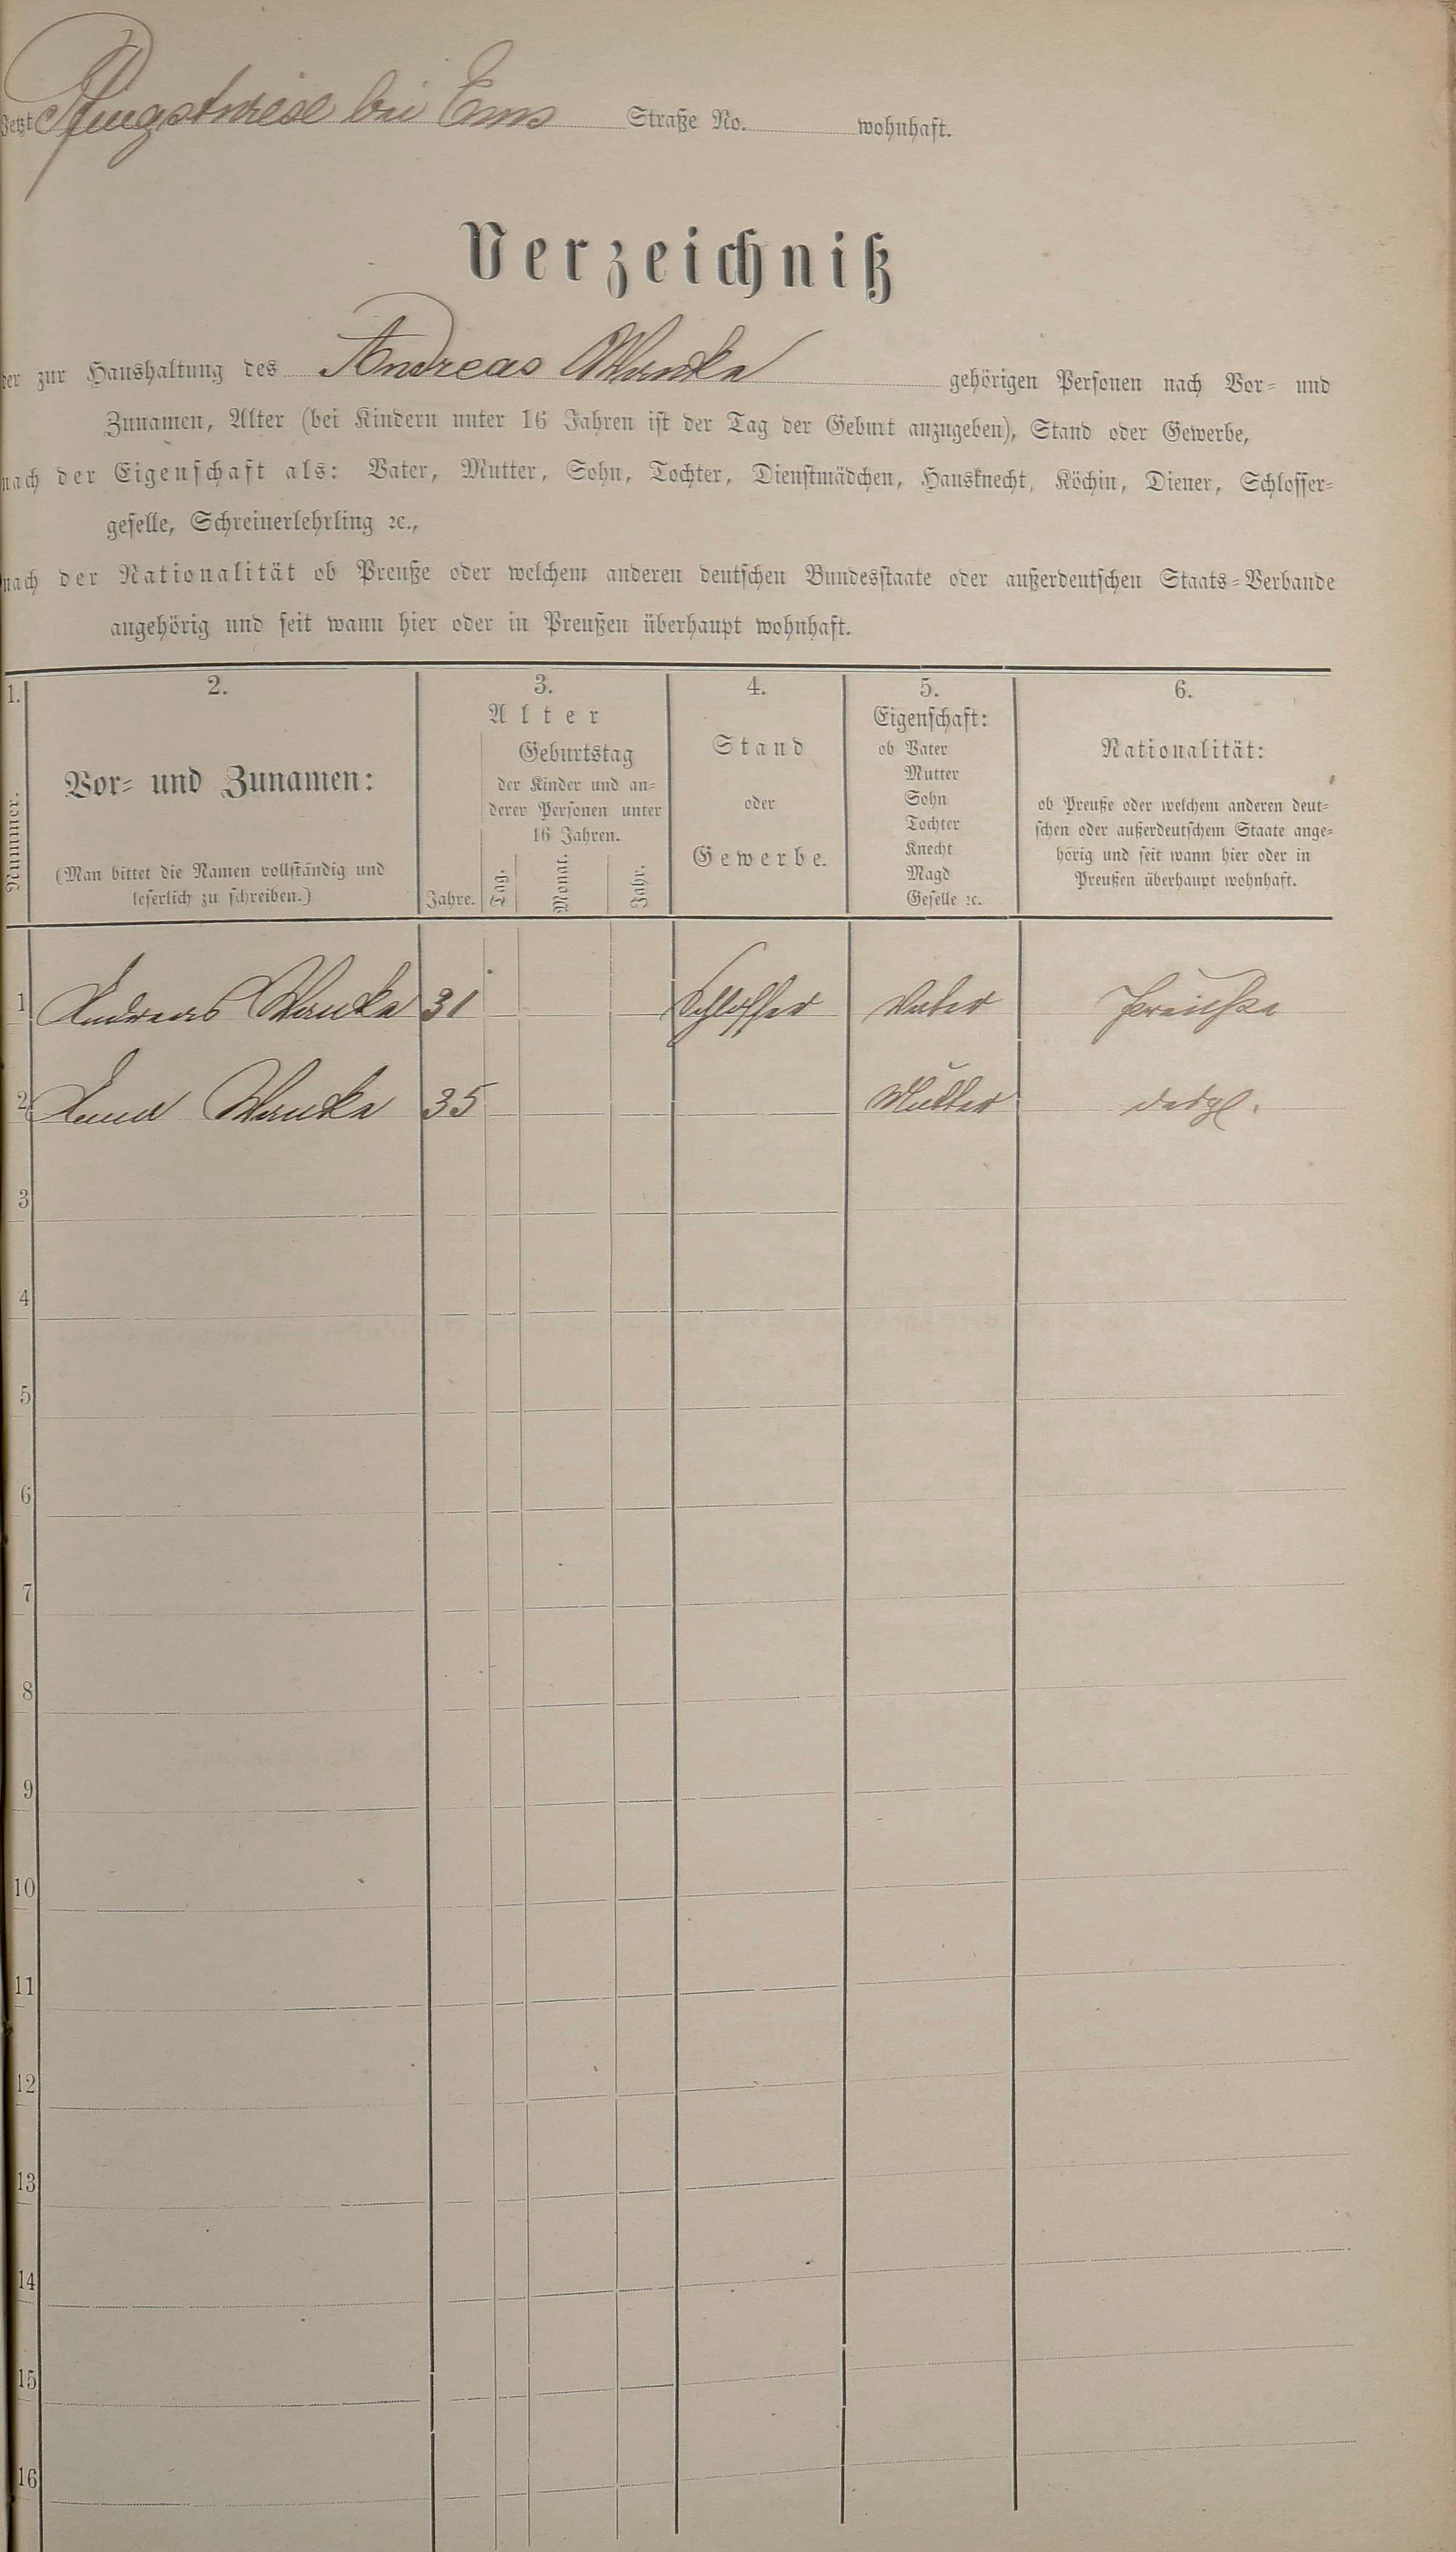 Jetzt Pfingstwiese bei Ems Straße No. wohnhaft.
Verzeichniß
der zur Haushaltung des Andreas Wanka gehörigen Personen nach Vor- und
Zunamen, Alter (bei Kindern unter 16 Jahren ist der Tag der Geburt anzugeben), Stand oder Gewerbe,
nach der Eigenschaft als: Vater, Mutter, Sohn, Tochter, Dienstmädchen, Hausknecht, Köchin, Diener, Schlosser-
geselle, Schreinerlehrling ꝛc.,
nach der Nationalität ob Preuße oder welchem anderen deutschen Bundesstaate oder außerdeutschen Staats-Verbande
angehörig und seit wann hier oder in Preußen überhaupt wohnhaft.
1.
Nummer.
2.
Vor- und Zunamen:
(Man bittet die Namen vollständig und
leserlich zu schreiben.)
3.
Alter
Geburtstag
der Kinder und an-
derer Personen unter
16 Jahren.
Jahre. Tag. Monat. Jahr.
4.
Stand
oder
Gewerbe.
5.
Eigenschaft:
ob Vater
Mutter
Sohn
Tochter
Knecht
Magd
Geselle ꝛc.
6.
Nationalität:
ob Preuße oder welchem anderen deut-
schen oder außerdeutschem Staate ange-
hörig und seit wann hier oder in
Preußen überhaupt wohnhaft.
1 Andreas Wanka 31 Schlosser Vater Preuße
2 Anna Wanka 35 Mutter desgl.
3
4
5
6
7
8
9
10
11
12
13
14
15
16